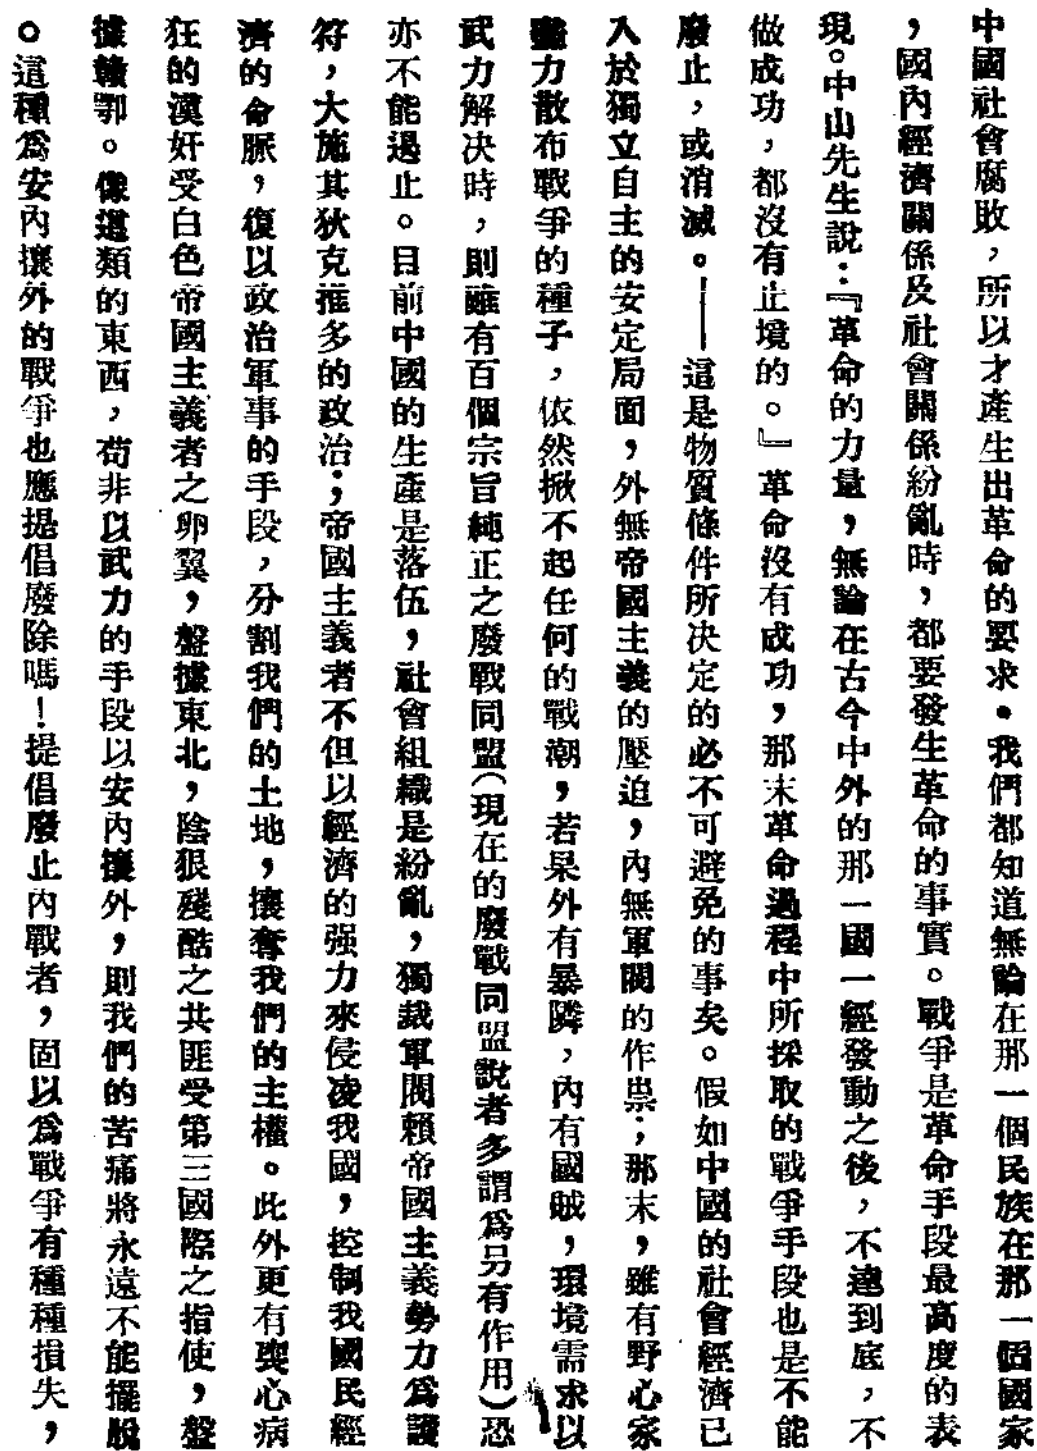 中國社會腐敗，所以才產生出革命的要求。我們都知道無論在那一個民族在那一個國家
，國內經濟關係及社會關係紛亂時，都要發生革命的事實。戰爭是革命手段最高度的表
現。中山先生說：『革命的力量，無論在古今中外的那一國一經發動之後，不達到底，不
做成功，都沒有止境的。』革命沒有成功，那末革命過程中所採取的戰爭手段也是不能
廢止，或消滅。——這是物質條件所決定的必不可避免的事矣。假如中國的社會經濟已
入於獨立自主的安定局面，外無帝國主義的壓迫，內無軍閥的作祟；那末，雖有野心家
盡力散布戰爭的種子，依然掀不起任何的戰潮，若果外有暴隣，內有國賊，環境需求以
武力解決時，則雖有百個宗旨純正之廢戰同盟（現在的廢戰同盟說者多謂爲另有作用）恐
亦不能遏止。目前中國的生產是落伍，社會組織是紛亂，獨裁軍閥賴帝國主義勢力爲護
符，大施其狄克推多的政治；帝國主義者不但以經濟的强力來侵凌我國，控制我國民經
濟的命脈，復以政治軍事的手段，分割我們的土地，攘奪我們的主權。此外更有喪心病
狂的漢奸受白色帝國主義者之卵翼，盤據東北，陰狠殘酷之共匪受第三國際之指使，盤
據贛鄂。像這類的東西，苟非以武力的手段以安內攘外，則我們的苦痛將永遠不能擺脫
。這種爲安內攘外的戰爭也應提倡廢除嗎！提倡廢止內戰者，固以爲戰爭有種種損失，